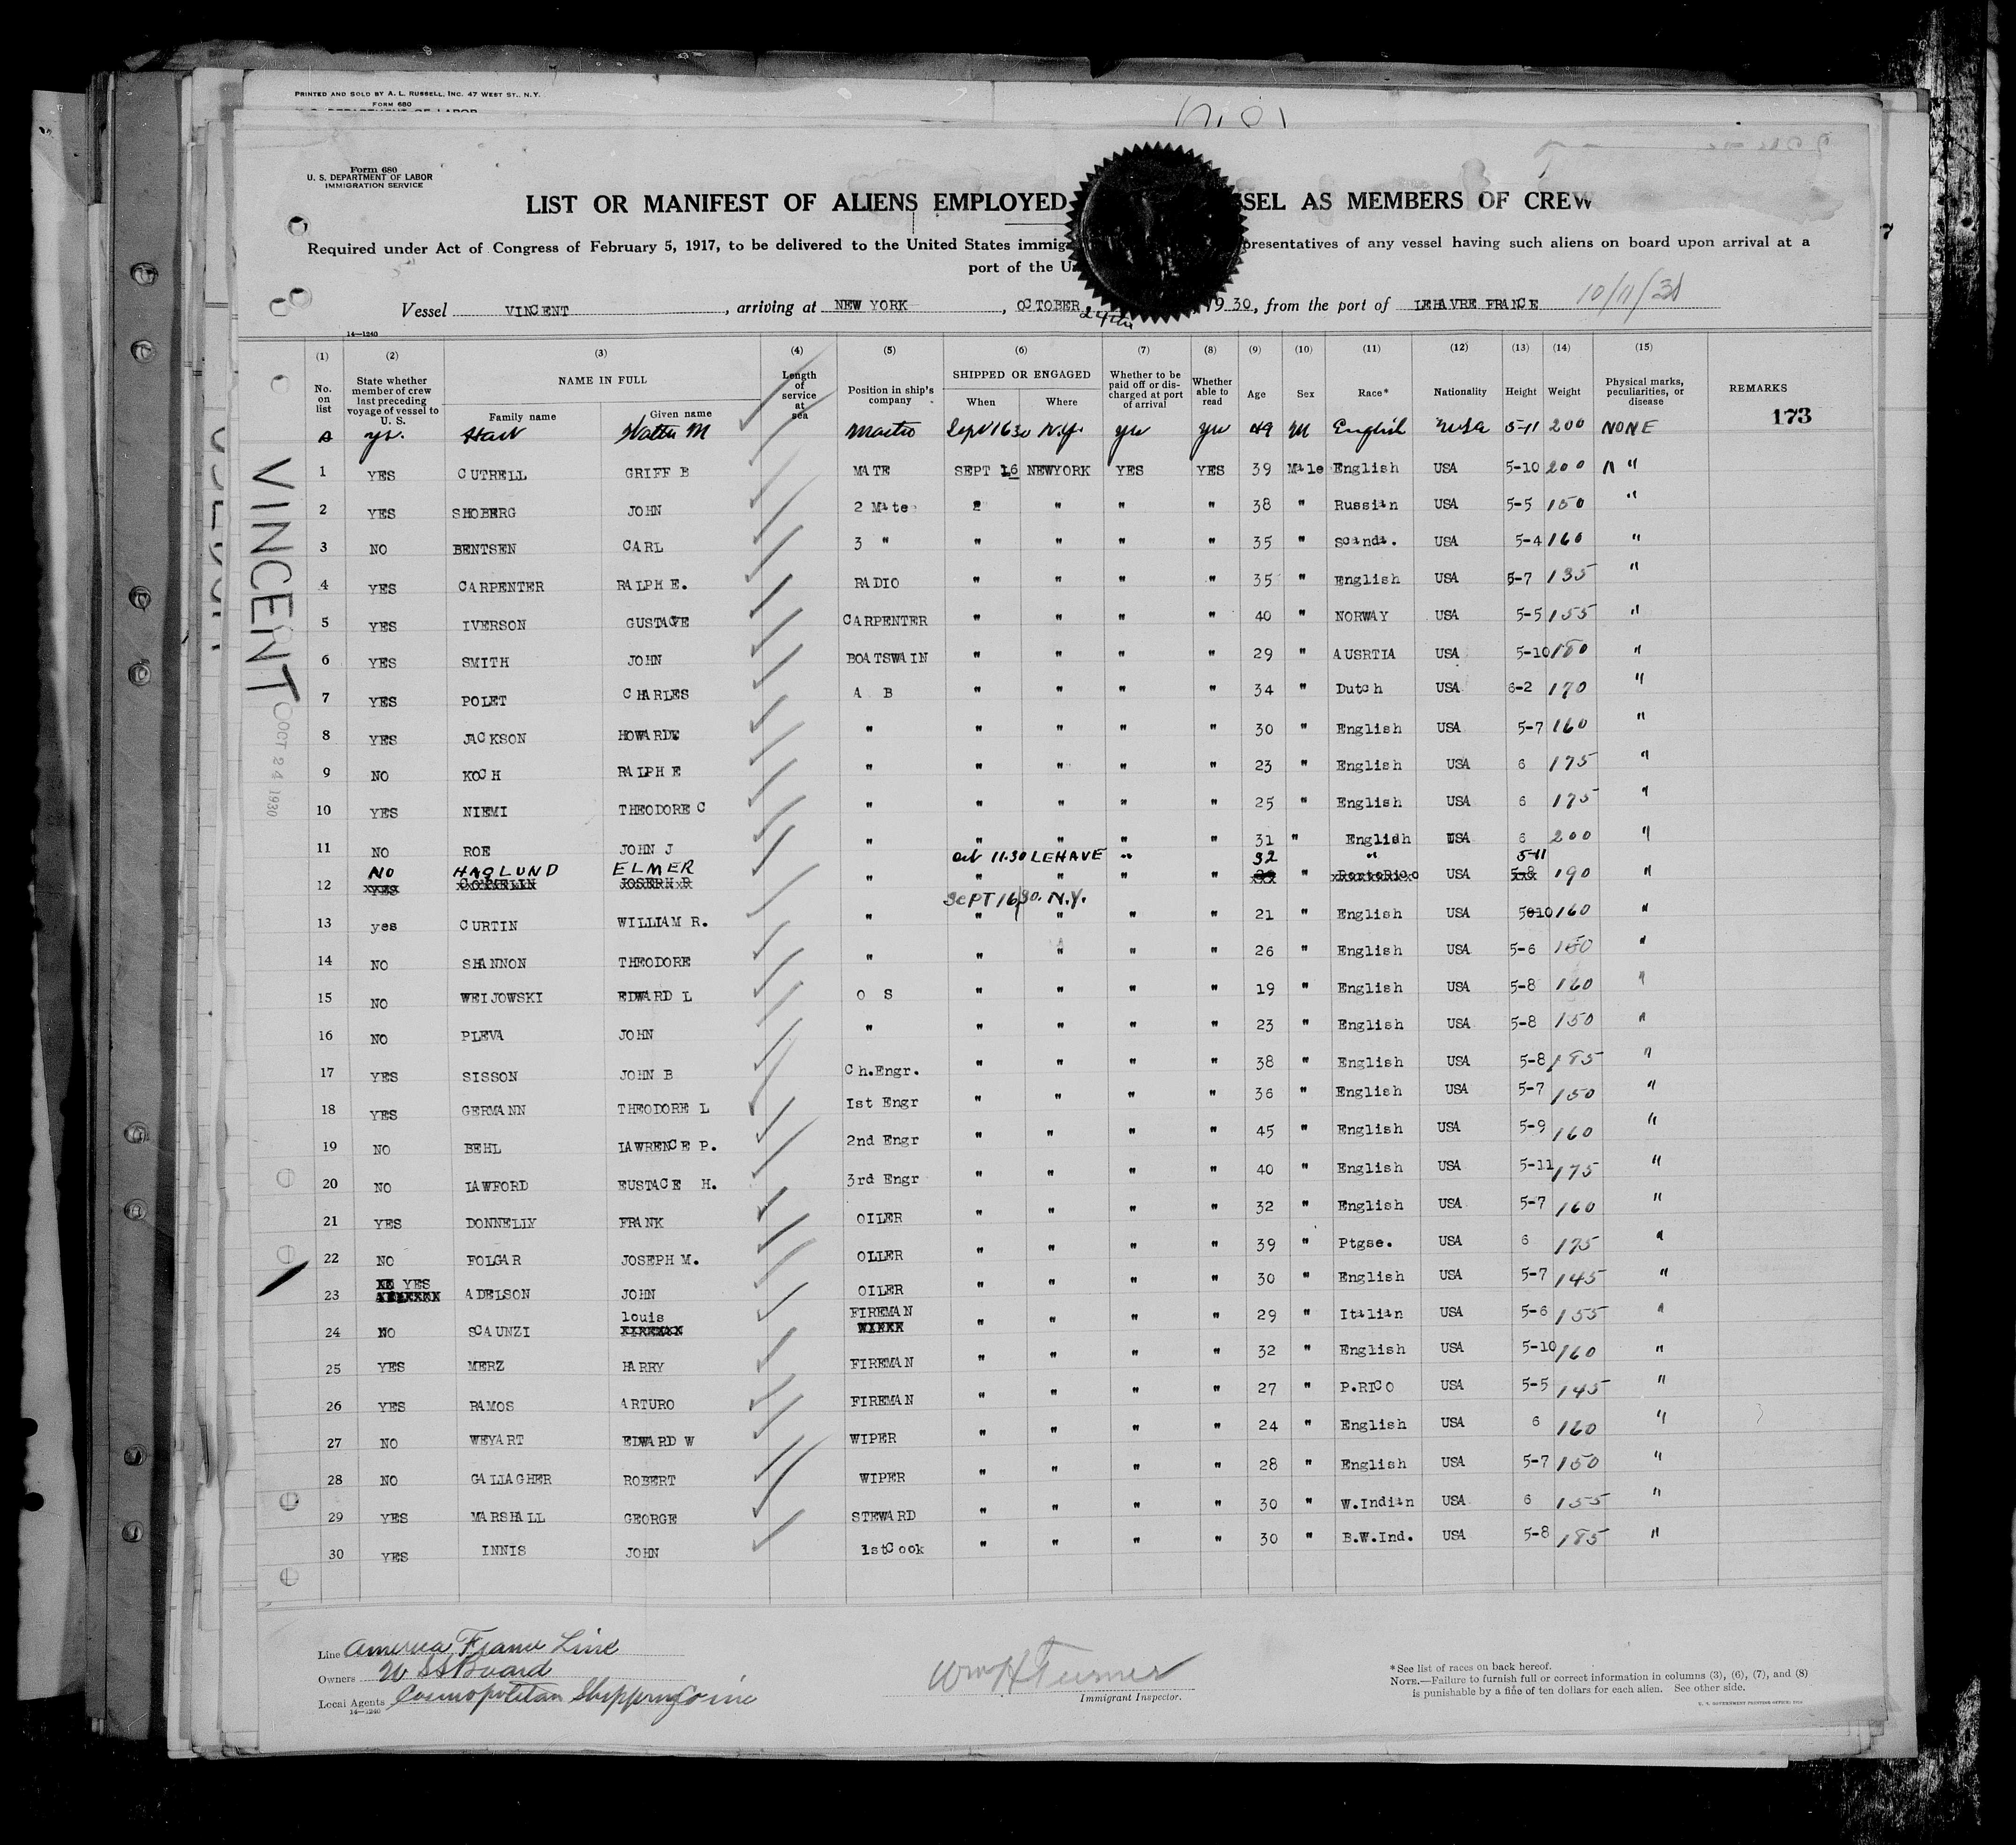 PRINTED AND SOLD BY A. L. RUSSELL, INC. 47 WEST ST., N.Y.
FORM 680
U. S. DEPARTMENT OF LABOR
Form 680
U. S. DEPARTMENT OF LABOR
IMMIGRATION SERVICE
LIST OR MANIFEST OF ALIENS EMPLOYED SSEL AS MEMBERS OF CREW
Required under Act of Congress of February 5, 1917, to be delivered to the United States immig presentatives of any vessel having such aliens on board upon arrival at a
port of the U
Vessel VINCENT , arriving at NEW YORK , OCTOBER 24th 1930, from the port of LEHAVRE FRANCE 10/11/30
14—1240
(1) (2) (3) (4) (5) (6) (7) (8) (9) (10) (11) (12) (13) (14) (15)
No. on list State whether member of crew last preceding voyage of vessel to U. S. NAME IN FULL Family name Given name Length of service at sea Position in ship's company SHIPPED OR ENGAGED When Where Whether to be paid off or discharged at port of arrival Whether able to read Age Sex Race* Nationality Height Weight Physical marks, peculiarities, or disease REMARKS
173
A yes. Hart Walter M Master Sept 16 30 N.Y. yes yes 49 M English USA 5-11 200 NONE
1 YES CUTRELL GRIFF B MATE SEPT 16 NEWYORK YES YES 39 Male English USA 5-10 200 "
2 YES SHOBERG JOHN 2 Mate " " " " 38 " Russian USA 5-5 150 "
3 NO BENTSEN CARL 3 " " " " " 35 " Scanda. USA 5-4 160 "
4 YES CARPENTER RALPH E. RADIO " " " " 35 " English USA 5-7 135 "
5 YES IVERSON GUSTAVE CARPENTER " " " " 40 " NORWAY USA 5-5 155 "
6 YES SMITH JOHN BOATSWAIN " " " " 29 " AUSRTIA USA 5-10 "
7 YES POLET CHARLES A B " " " " 34 " Dutch USA 6-2 170 "
8 YES JACKSON HOWARD " " " " " 30 " English USA 5-7 160 "
9 NO KOCH RALPH E " " " " " 23 " English USA 6 175 "
10 YES NIEMI THEODORE C " " " " " 25 " English USA 6 175 "
11 NO ROE JOHN J " " " " " 31 " English USA 6 200 "
Oct 11.30 LEHAVE " 32 " 5-11
12 NO HAGLUND ELMER " " " " " " USA 190 "
SEPT 16/30. N.Y.
13 yes CURTIN WILLIAM R. " " " " " 21 " English USA 5-10 160 "
14 NO SHANNON THEODORE " " " " " 26 " English USA 5-6 150 "
15 NO WEIJOWSKI EDWARD L O S " " " " 19 " English USA 5-8 160 "
16 NO PLEVA JOHN " " " " " 23 " English USA 5-8 150 "
17 YES SISSON JOHN B Ch.Engr. " " " " 38 " English USA 5-8 185 "
18 YES GERMANN THEODORE L 1st Engr " " " " 36 " English USA 5-7 150 "
19 NO BEHL LAWRENCE P. 2nd Engr " " " " 45 " English USA 5-9 160 "
20 NO LAWFORD EUSTACE H. 3rd Engr " " " " 40 " English USA 5-11 175 "
21 YES DONNELLY FRANK OILER " " " " 32 " English USA 5-7 160 "
22 NO FOLGAR JOSEPH M. OLLER " " " " 39 " Ptgse. USA 6 175 "
23 YES ADELSON JOHN OILER " " " " 30 " English USA 5-7 145 "
24 NO SCAUNZI louis FIREMAN " " " " 29 " Italian USA 5-6 155 "
25 YES MERZ HARRY FIREMAN " " " " 32 " English USA 5-10 160 "
26 YES RAMOS ARTURO FIREMAN " " " " 27 " P.RICO USA 5-5 145 "
27 NO WEYART EDWARD W WIPER " " " " 24 " English USA 6 160 "
28 NO GALLAGHER ROBERT WIPER " " " " 28 " English USA 5-7 150 "
29 YES MARSHALL GEORGE STEWARD " " " " 30 " W.Indian USA 6 155 "
30 YES INNIS JOHN 1stCook " " " " 30 " B.W.Ind. USA 5-8 185 "
VINCENT
OCT 24 1930
Line America France Line
Owners U S S Board
Local Agents Cosmopolitan Shipping Co inc
14—1240
Wm H Turner
Immigrant Inspector.
*See list of races on back hereof.
NOTE.—Failure to furnish full or correct information in columns (3), (6), (7), and (8)
is punishable by a fine of ten dollars for each alien. See other side.